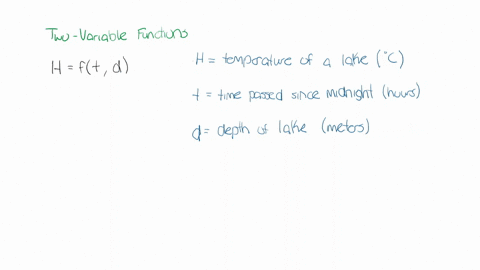 Two-Variable Functions
H = f(t, d)
H = temperature of a lake (°C)
t = time passed since midnight (hours)
d = depth of lake (meters)